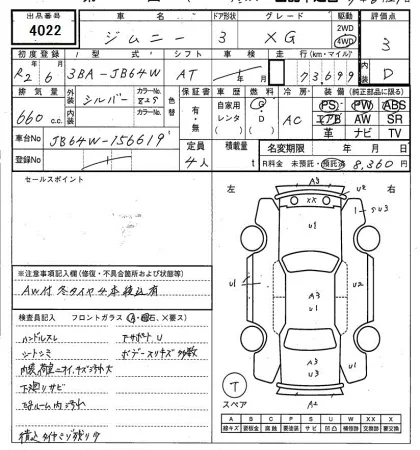 出品番号 車名 ドア形状 グレード 駆動 評価点
4022 ジムニー 3 XG 2WD 4WD 3
初度登録 型式 シフト 車検 走行(km・マイル) 内装
R2年 6月 3BA-JB64W AT 73,699 D
排気量 外装 シルバー カラーNo. 825 色替 保証書 車歴 燃料 冷房 装備(純正部品に限る)
660 cc 内装 カラーNo. 有・無 自家用 レンタ ( ) G・D ( ) AC PS PW ABS
エアB AW SR
革 ナビ TV
車台No JB64W-156619 定員 積載量 名変期限 年 月 日
登録No 4人 t R料金 未預託・預託済 8,360円
セールスポイント
左 右
A3
U2
XX
U1
1
U3
U1
U2
A3
U1
A3
U3
A2
T
スペア
※注意事項記入欄(修復・不具合箇所および状態等)
AW付冬タイヤ4本積込有
検査員記入 フロントガラス (A・飛石、X要ス)
ハンドルスレ
下サポートU
シートシミ
ボデースリキズ多数
内張、荷室ニオイ、キズ汚れ大
下廻りサビ
内汚れ
A B C P S U W X XX
線キズ 要板金 腐蝕 要塗装 サビ 凹凸 補修跡 要交換 交換跡